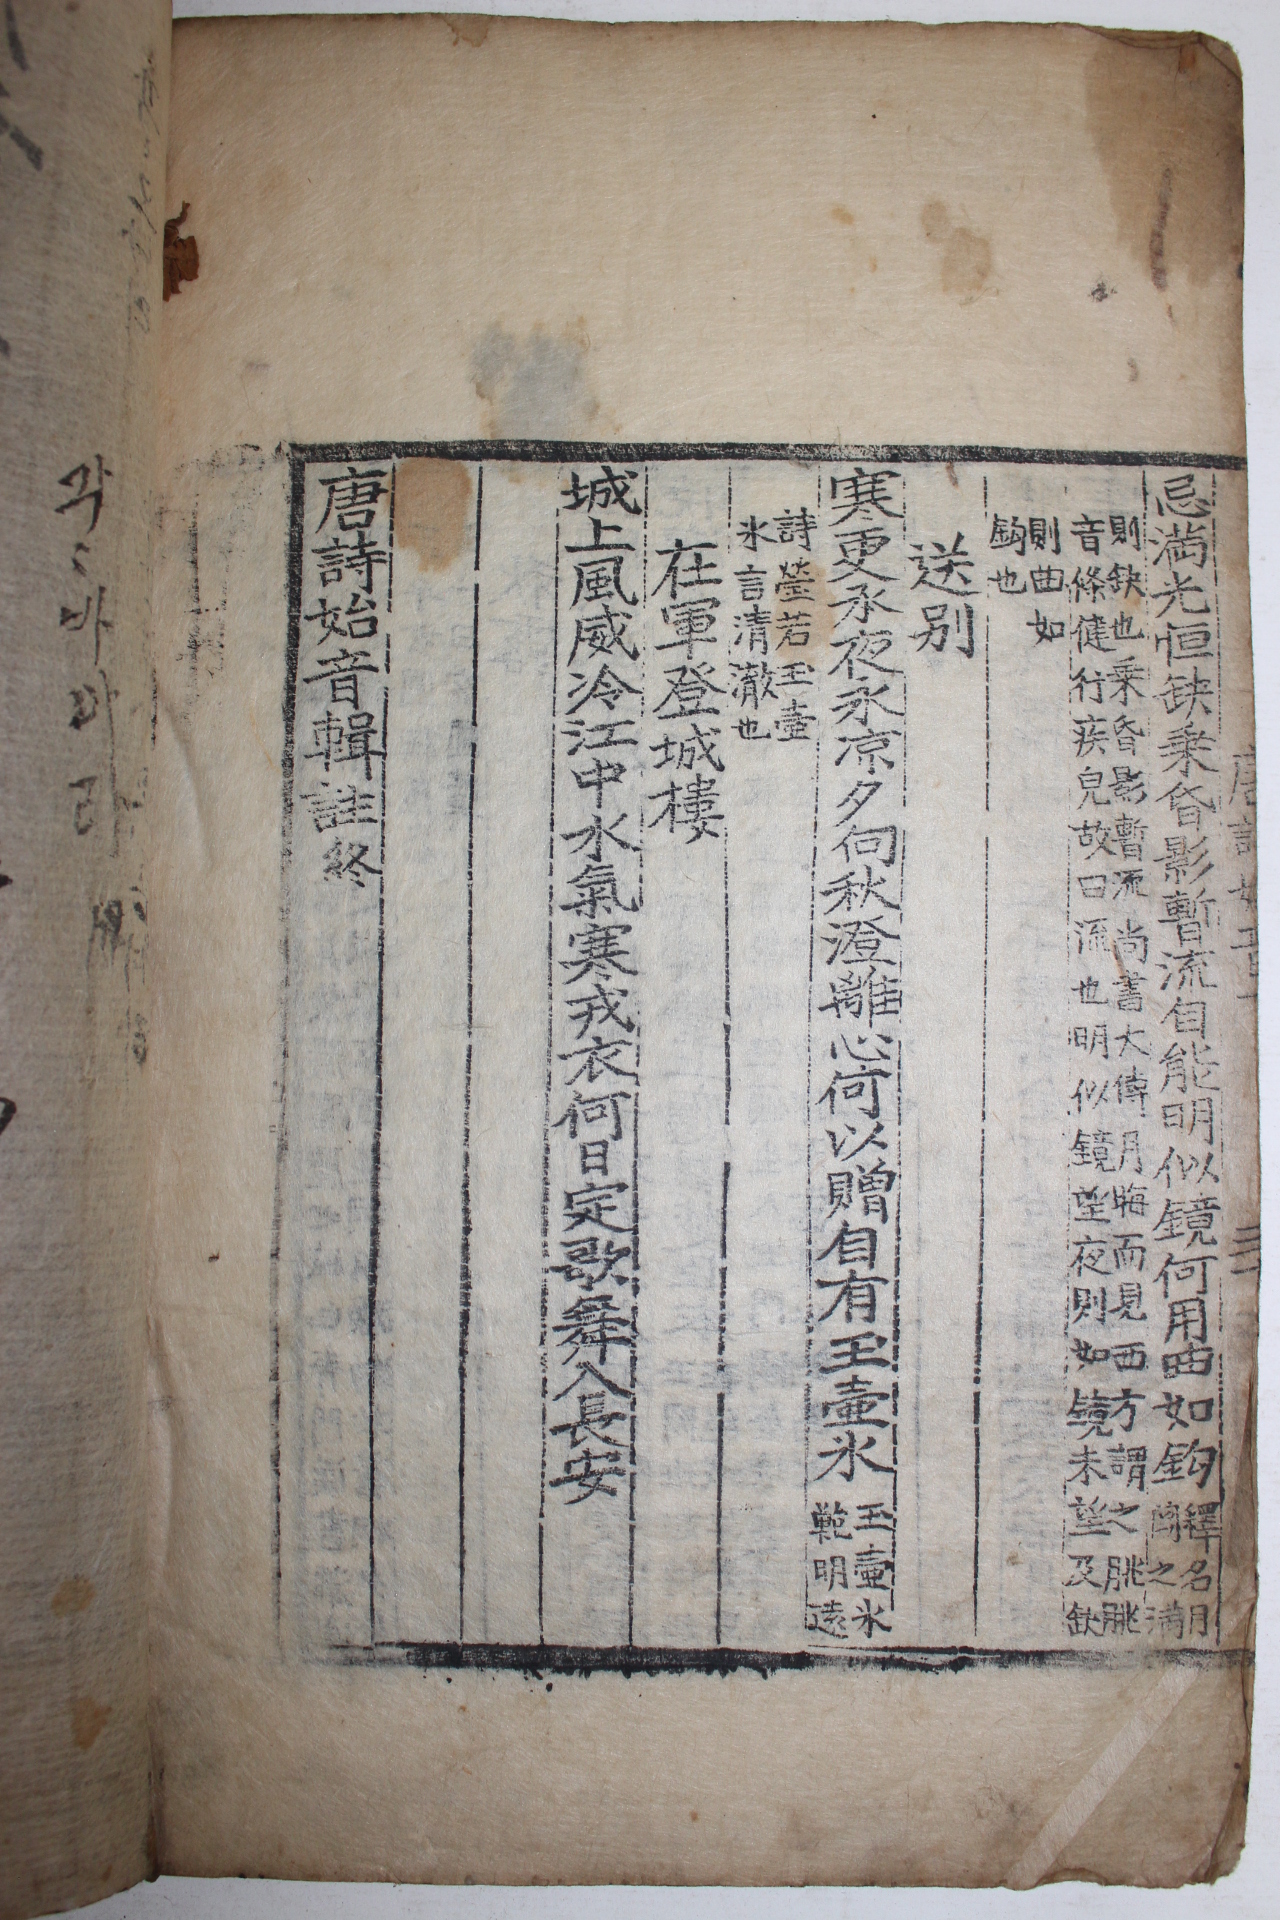 忌滿光恒缺乘昏影暫流自能明似鏡何用曲如鉤釋名月
闕之滿
則缺也乘昏影暫流尚書大傳月晦而見西方謂之朓朓
音條健行疾皃故曰流也明似鏡望夜則如鏡未望及缺
則曲如
鉤也
送别
寒更承夜永凉夕向秋澄離心何以贈自有玉壺氷玉壺氷
範明遠
詩瑩若玉壺
氷言清澈也
在軍登城樓
城上風威冷江中水氣寒戎衣何日定歌舞入長安
唐詩始音輯註終
唐詩始音
각〻바마라